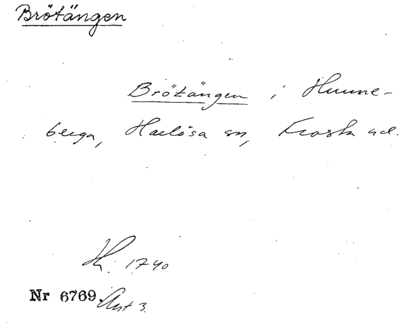 Brötängen
Brötängen i Hunne-
berga, Harlösa sn, Frosta hd.
H. 1740
Nr 6769. Ant 3.